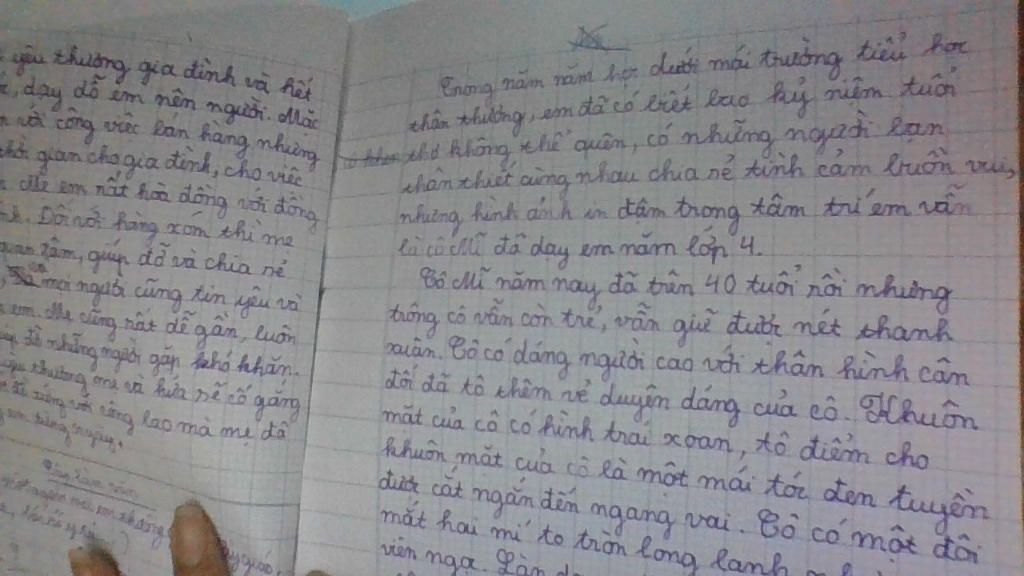 yêu thương gia đình và hết
dạy dỗ em nên người. Mặc
với công việc bán hàng nhưng
gian cho gia đình, cho việc
Mẹ em rất hoà đồng với
Đối với hàng xóm thì mẹ
quan tâm, giúp đỡ và chia sẻ
mọi người cũng tin yêu và
em. Mẹ cũng rất dễ gần, luôn
những người gặp khó khăn.
thương mẹ và hứa sẽ cố gắng
công lao mà mẹ đã
Trong năm năm học dưới mái trường tiểu học
thân thương, em đã có biết bao kỷ niệm tuổi
thơ không thể quên, có những người bạn
thân thiết cùng nhau chia sẻ tình cảm buồn vui,
nhưng hình ảnh in đậm trong tâm trí em vẫn
là cô Mĩ đã dạy em năm lớp 4.
Cô Mĩ năm nay đã trên 40 tuổi rồi nhưng
trông cô vẫn còn trẻ, vẫn giữ được nét thanh
xuân. Cô có dáng người cao với thân hình cân
đối đã tô thêm vẻ duyên dáng của cô. Khuôn
mặt của cô có hình trái xoan, tô điểm cho
khuôn mặt của cô là một mái tóc đen tuyền
được cắt ngắn đến ngang vai. Cô có một đôi
mắt hai mí to tròn long lanh
viên ngọc. Làn da